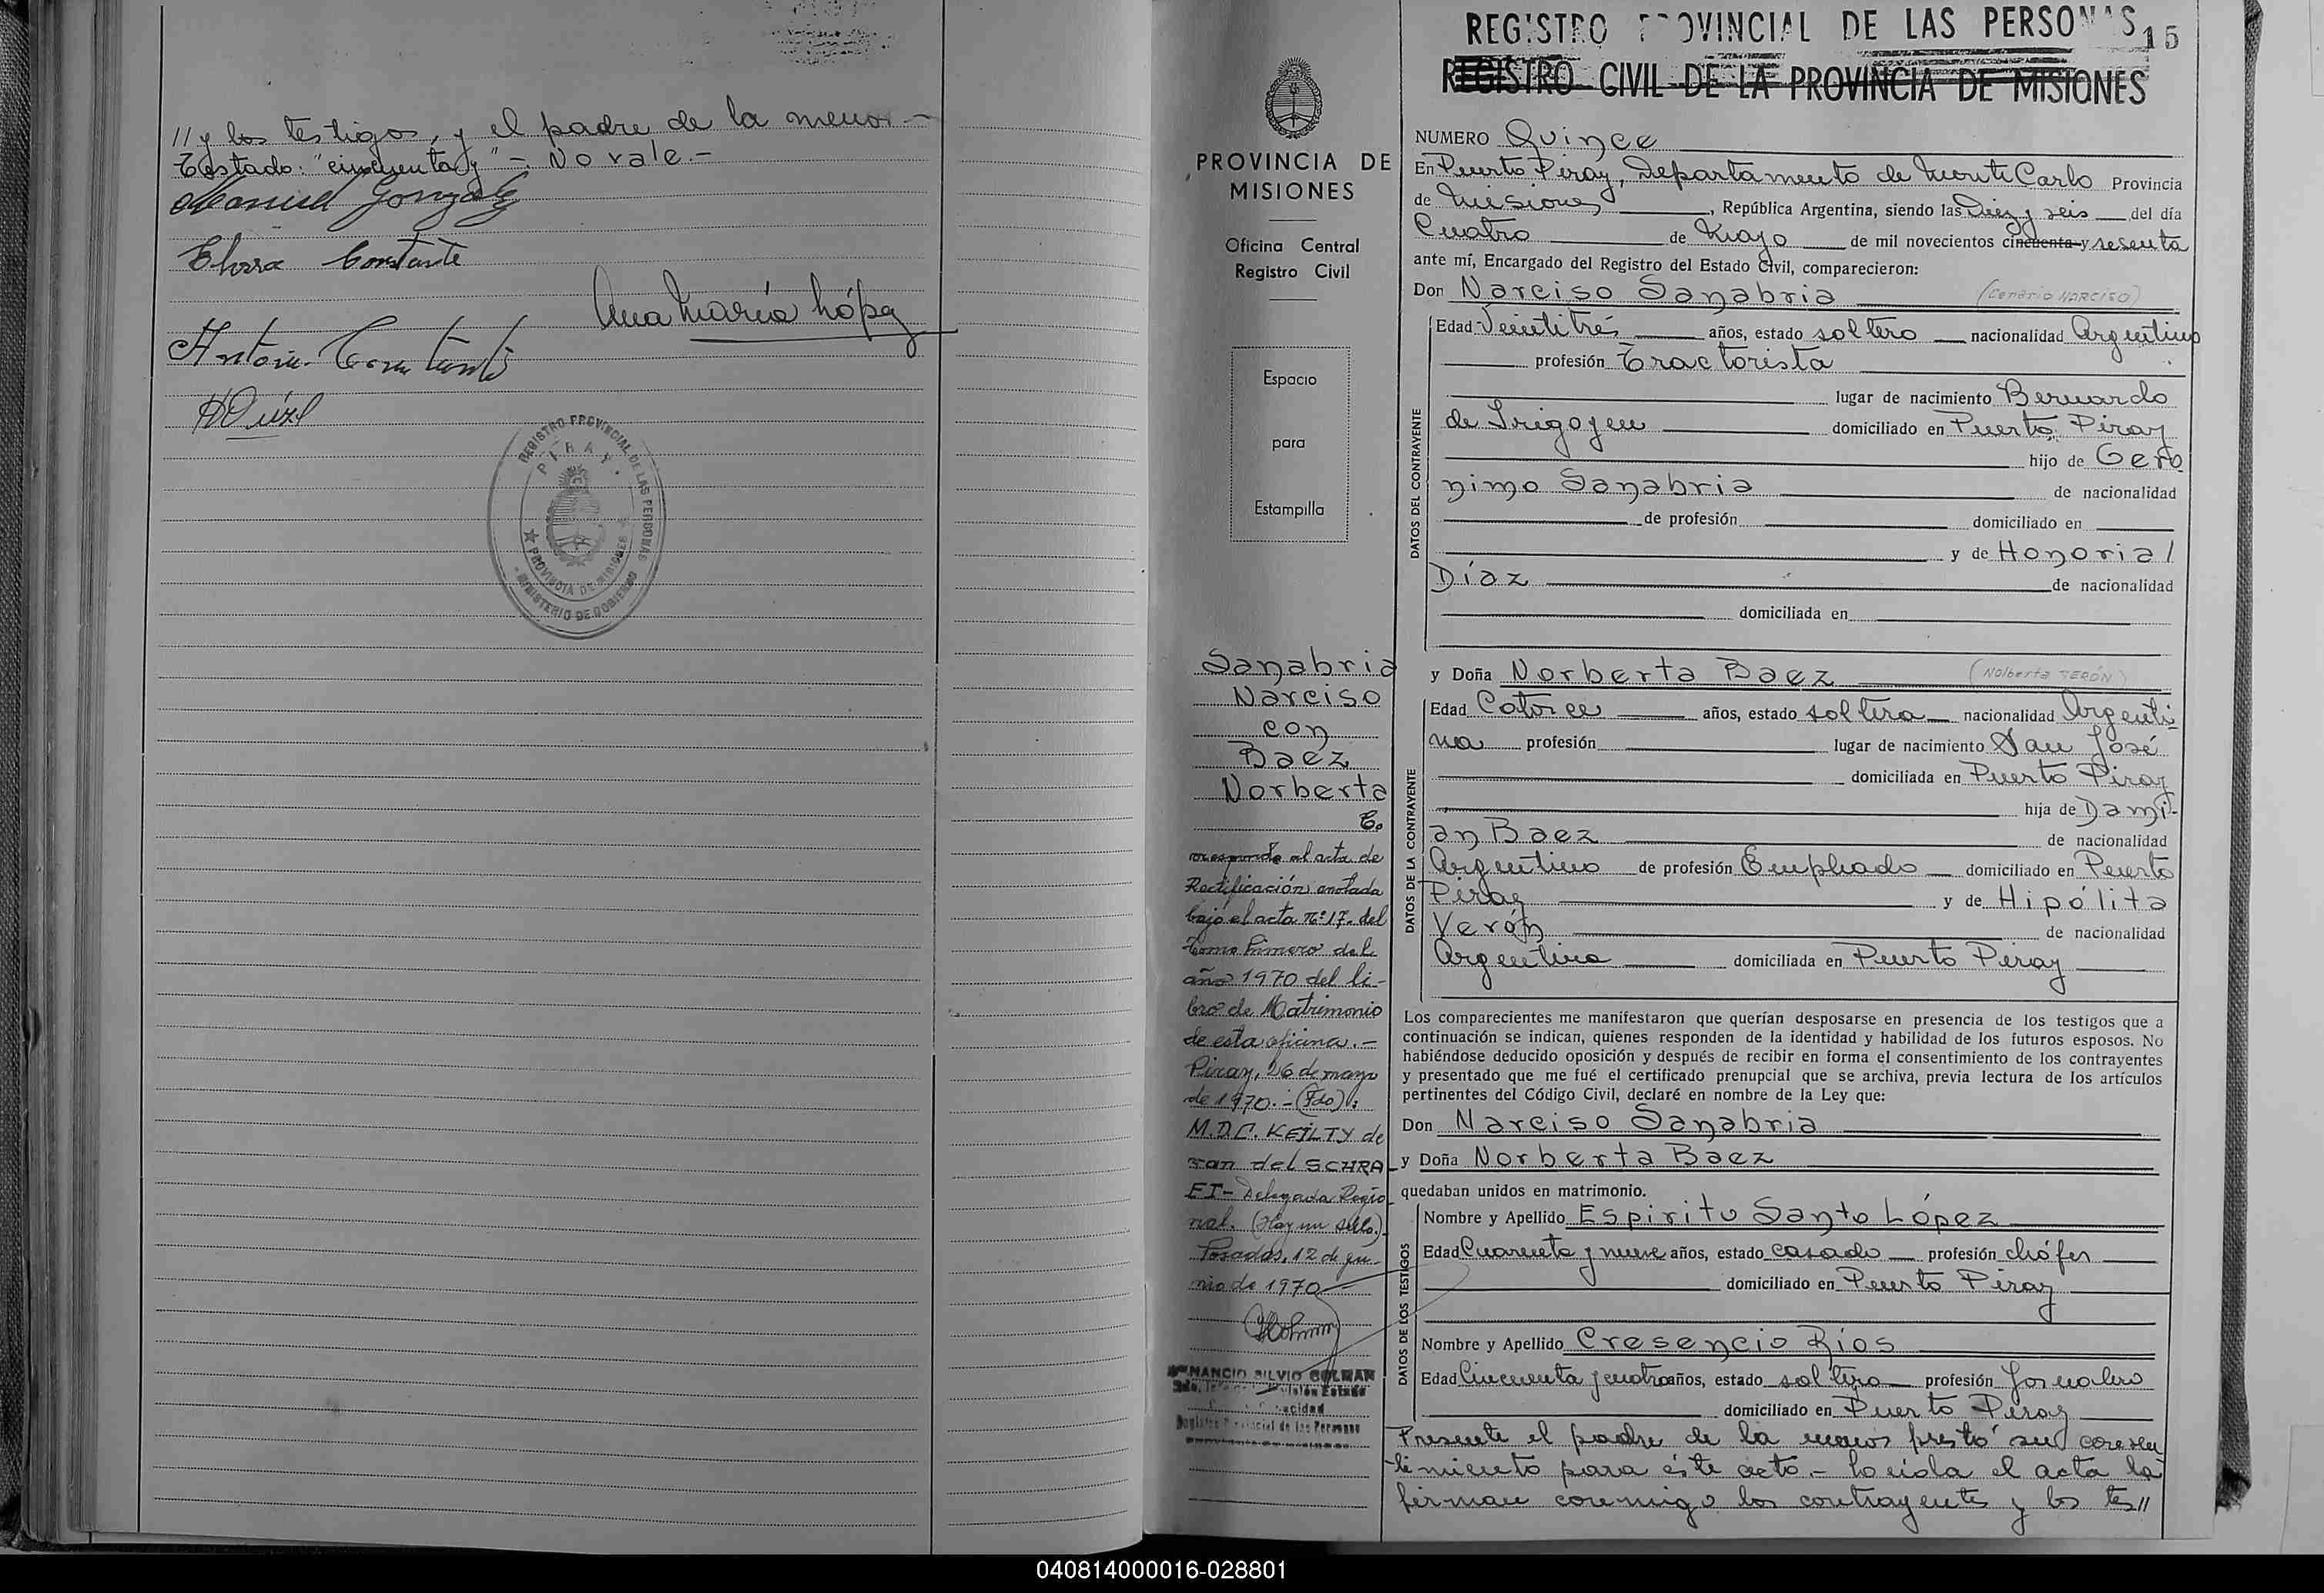 // y los testigos, y el padre de la menor.-
Testado: "cincuenta y" -. No vale.-
Manuel González
Elvira Constante
Ana María López
REGISTRO PROVINCIAL DE LAS PERSONAS
PIRAY
PROVINCIA DE MISIONES
MINISTERIO DE GOBIERNO
REGISTRO PROVINCIAL DE LAS PERSONAS
15
REGISTRO CIVIL DE LA PROVINCIA DE MISIONES
PROVINCIA DE
MISIONES
Oficina Central
Registro Civil
Espacio
para
Estampilla
Sanabria
Narciso
con
Baez
Norberta
C.
orresponde al acta de
Rectificación anotada
bajo el acta Nº 17- del
tomo Primero del
año 1970 del li-
bro de Matrimonio
de esta oficina.-
Piray, 26 de mayo
de 1970.- (Fdo):
M.D.C. KEILTY de
van del SCHRA
EI- Delegada Regio
nal. (Hay un sello.)
Posadas, 12 de ju-
nio de 1970
VENANCIO SILVIO COLMAN
NUMERO Quince
En Puerto Piray, Departamento de Monte Carlo Provincia
de Misiones, República Argentina, siendo las Diez y seis del día
Cuatro de Mayo de mil novecientos cincuenta y sesenta
ante mí, Encargado del Registro del Estado Civil, comparecieron:
Don Narciso Sanabria (Cenario NARCISO)
DATOS DEL CONTRAYENTE
Edad Veintitrés años, estado soltero nacionalidad Argentino
profesión Tractorista
lugar de nacimiento Bernardo
de Irigoyen domiciliado en Puerto Piray
hijo de Gero
nimo Sanabria de nacionalidad
de profesión domiciliado en
y de Honoria
Díaz de nacionalidad
domiciliada en
y Doña Norberta Baez (Nolberta TERÓN)
DATOS DE LA CONTRAYENTE
Edad Catorce años, estado soltera nacionalidad Argenti-
na profesión lugar de nacimiento San José
domiciliada en Puerto Piray
hija de Dami-
an Baez de nacionalidad
Argentino de profesión Empleado domiciliado en Puerto
Piray y de Hipólita
Verón de nacionalidad
Argentina domiciliada en Puerto Piray
Los comparecientes me manifestaron que querían desposarse en presencia de los testigos que a
continuación se indican, quienes responden de la identidad y habilidad de los futuros esposos. No
habiéndose deducido oposición y después de recibir en forma el consentimiento de los contrayentes
y presentado que me fué el certificado prenupcial que se archiva, previa lectura de los artículos
pertinentes del Código Civil, declaré en nombre de la Ley que:
Don Narciso Sanabria
y Doña Norberta Baez
quedaban unidos en matrimonio.
DATOS DE LOS TESTIGOS
Nombre y Apellido Espirito Santo López
Edad Cuarenta y nueve años, estado casado profesión chófer
domiciliado en Puerto Piray
Nombre y Apellido Cresencio Ríos
Edad Cincuenta y cuatro años, estado soltero profesión Jornalero
domiciliado en Puerto Piray
Presente el padre de la menor prestó su consen
timiento para éste acto.- Leída el acta la
firman conmigo los contrayentes y los tes//
040814000016-028801